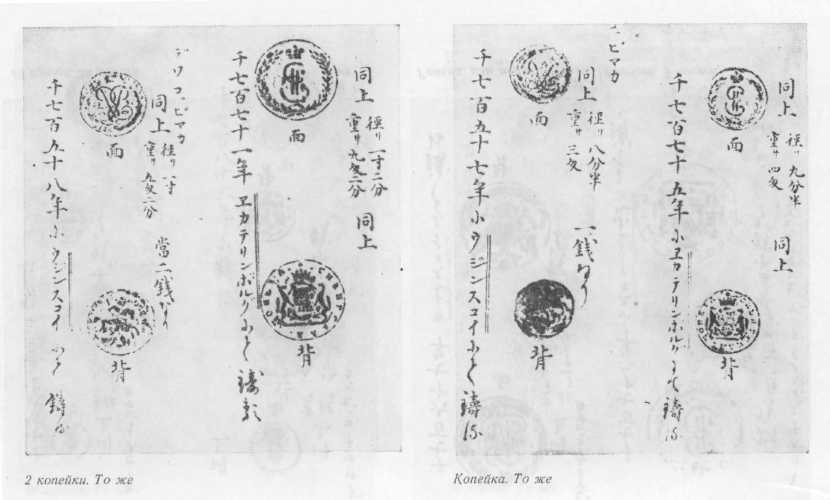 同上
徑リ一寸二分
重サ九匁二分
同上
面
背
千七百七十一年ヱカテリンボルクニテ鑄
同上
徑リ一寸
重サ五匁二分
當二銭ナリ
デワコピマカ
面
背
千七百五十八年ニウジンスコイニテ鑄ル
2 копейки. То же
同上
徑リ九分半
重サ四匁
同上
面
背
千七百七十五年ニヱカテリンボルクニテ鑄ル
同上
徑リ八分半
重サ三匁
一銭ナリ
ピマカ
面
背
千七百五十七年ニウジンスコイニテ鑄ル
Копейка. То же